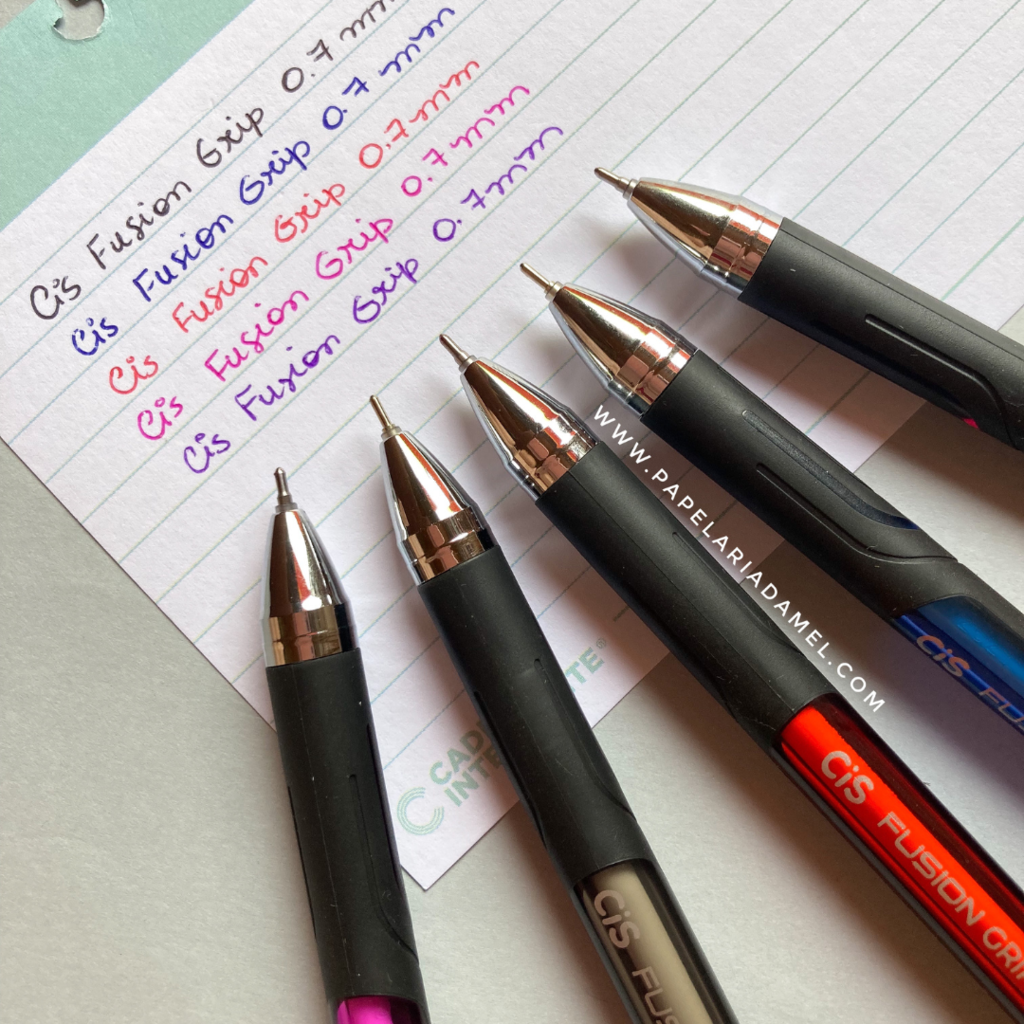 Cis Fusion Grip 0.7 mm
Cis Fusion Grip 0.7 mm
Cis Fusion Grip 0.7 mm
Cis Fusion Grip 0.7 mm
Cis Fusion Grip 0.7 mm
WWW.PAPELARIADAMEL.COM
CiS FUS
CiS FUSION GRIP
CiS